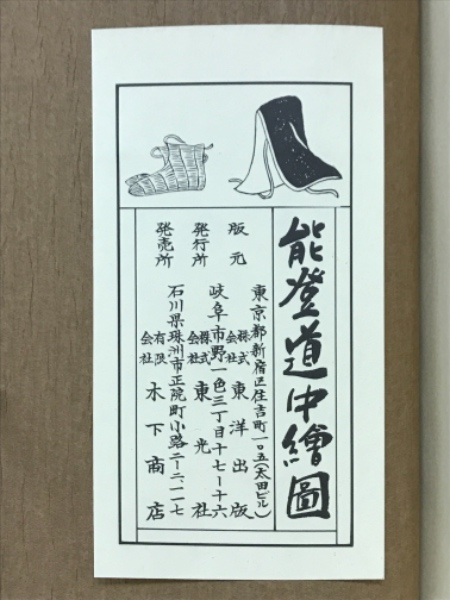 能登道中繪圖
東京都新宿区住吉町一〇五(太田ビル)
版元 株式会社 東洋出版
岐阜市野一色三丁目十七ー十六
発行所 株式会社 東光社
石川県珠洲市正院町小路二ー二、一一七
発売所 有限会社 木下商店